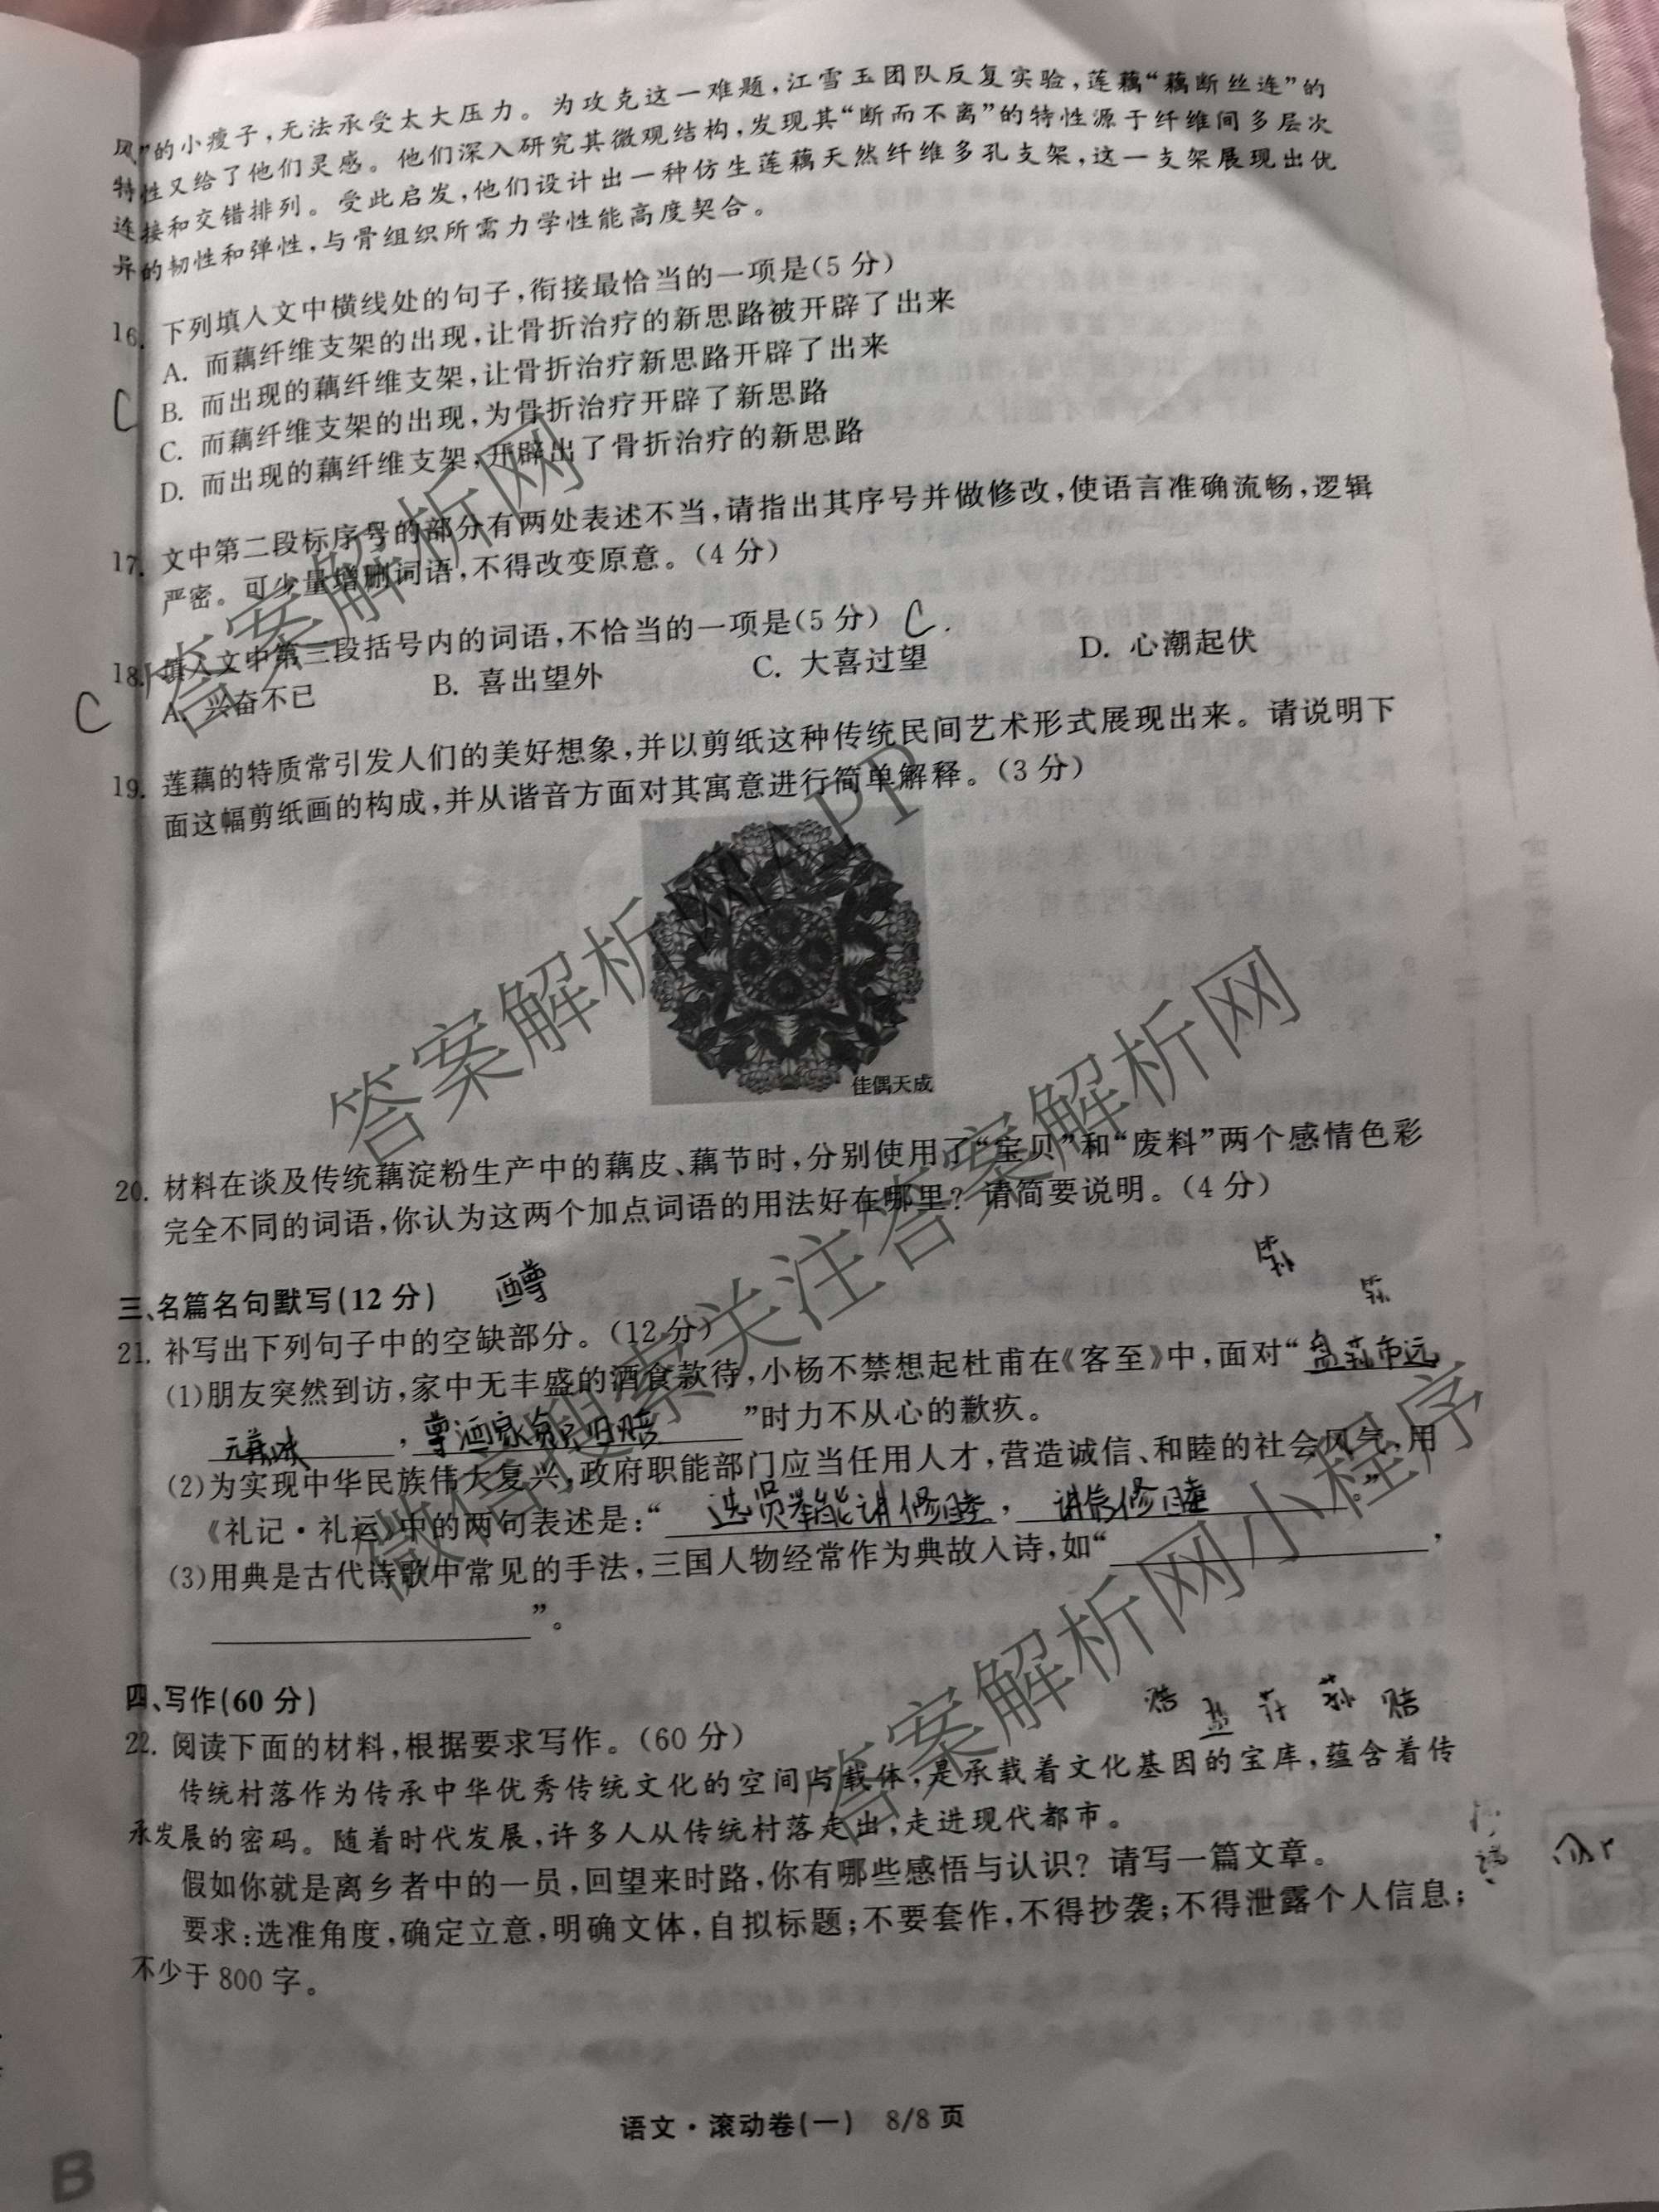 风”的小瘦子,无法承受太大压力。为攻克这一难题,江雪玉团队反复实验,莲藕“藕断丝连”的
特性又给了他们灵感。他们深入研究其微观结构,发现其“断而不离”的特性源于纤维间多层次
连接和交错排列。受此启发,他们设计出一种仿生莲藕天然纤维多孔支架,这一支架展现出优
异的韧性和弹性,与骨组织所需力学性能高度契合。
16. 下列填入文中横线处的句子,衔接最恰当的一项是(5分)
A. 而藕纤维支架的出现,让骨折治疗的新思路被开辟了出来
C B. 而出现的藕纤维支架,让骨折治疗新思路开辟了出来
C. 而藕纤维支架的出现,为骨折治疗开辟了新思路
D. 而出现的藕纤维支架,开辟出了骨折治疗的新思路
17. 文中第二段标序号的部分有两处表述不当,请指出其序号并做修改,使语言准确流畅,逻辑
严密。可少量增删词语,不得改变原意。(4分)
18. 填入文中第三段括号内的词语,不恰当的一项是(5分) C.
C A. 兴奋不已 B. 喜出望外 C. 大喜过望 D. 心潮起伏
19. 莲藕的特质常引发人们的美好想象,并以剪纸这种传统民间艺术形式展现出来。请说明下
面这幅剪纸画的构成,并从谐音方面对其寓意进行简单解释。(3分)
佳偶天成
20. 材料在谈及传统藕淀粉生产中的藕皮、藕节时,分别使用了“宝贝”和“废料”两个感情色彩
完全不同的词语,你认为这两个加点词语的用法好在哪里?请简要说明。(4分)
三、名篇名句默写(12分)
21. 补写出下列句子中的空缺部分。(12分)
(1)朋友突然到访,家中无丰盛的酒食款待,小杨不禁想起杜甫在《客至》中,面对“ 市远
,  ”时力不从心的歉疚。
(2)为实现中华民族伟大复兴,政府职能部门应当任用人才,营造诚信、和睦的社会风气,用
《礼记·礼运》中的两句表述是:“选贤举能讲修睦,讲信修睦”。
(3)用典是古代诗歌中常见的手法,三国人物经常作为典故入诗,如“ ,
”。
四、写作(60分)
22. 阅读下面的材料,根据要求写作。(60分)
传统村落作为传承中华优秀传统文化的空间与载体,是承载着文化基因的宝库,蕴含着传
承发展的密码。随着时代发展,许多人从传统村落走出,走进现代都市。
假如你就是离乡者中的一员,回望来时路,你有哪些感悟与认识?请写一篇文章。
要求:选准角度,确定立意,明确文体,自拟标题;不要套作,不得抄袭;不得泄露个人信息;
不少于800字。
语文·滚动卷(一) 8/8页
B
答案解析网
答案解析网APP
微信搜索关注答案解析网
答案解析网小程序